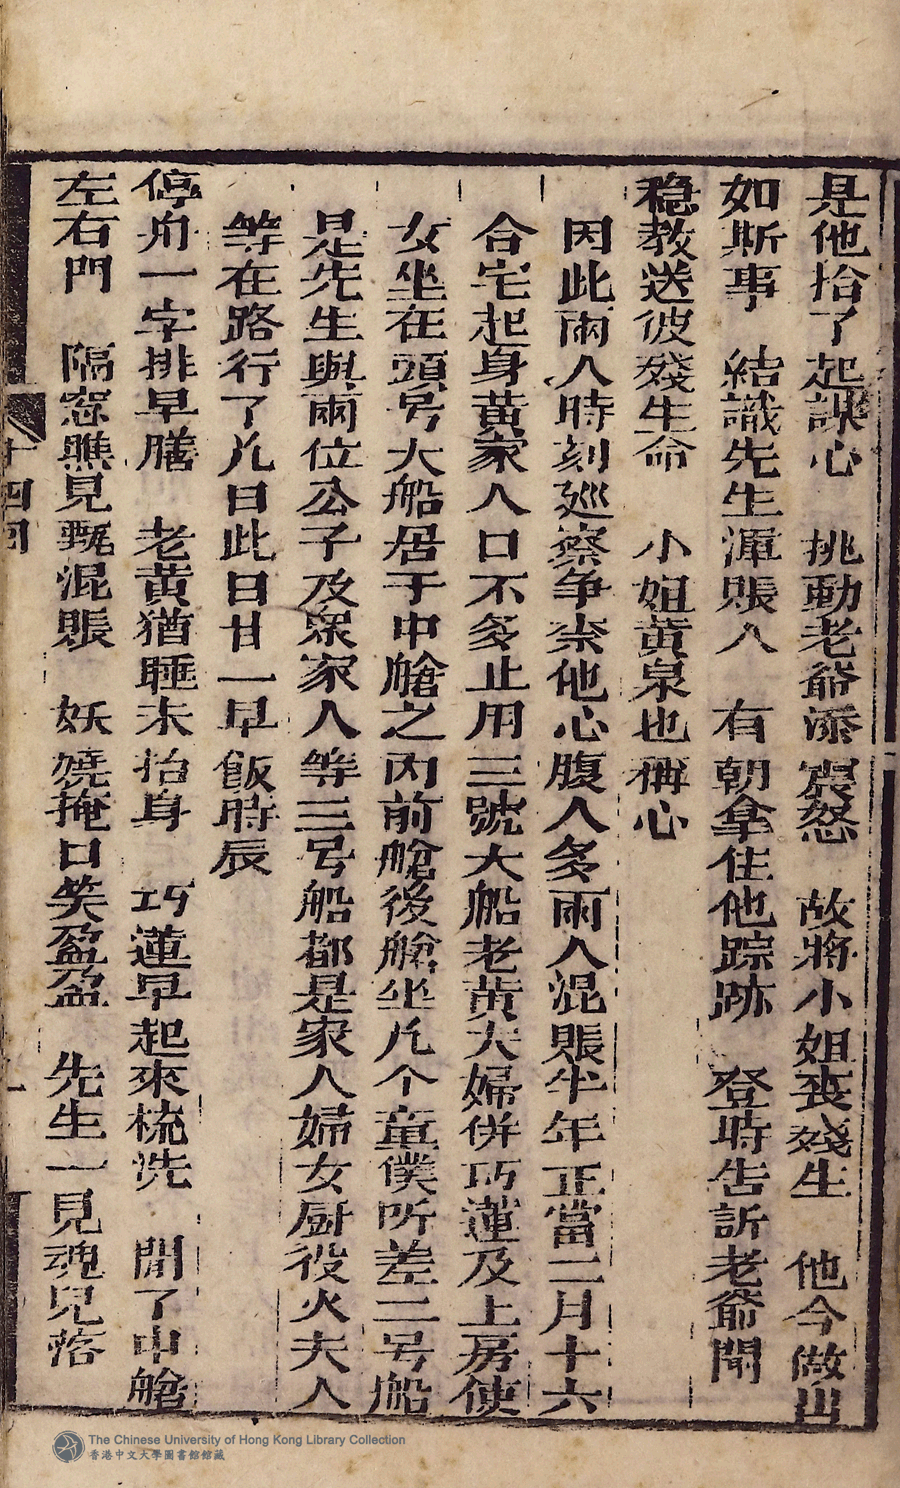 是他拾了起謀心　挑動老爺添震怒　故將小姐喪殘生　他今做出
如斯事　結識先生渾賬人　有朝拿住他踪跡　登時告訴老爺聞
穩教送彼殘生命　小姐黄泉也稱心
因此兩人時刻廵察争柰他心腹人多兩人混賬半年正當二月十六
合宅起身黄家人口不多止用三號大船老黄夫婦併巧蓮及上房使
女坐在頭号大船居于中艙之内前艙後艙坐几个童僕听差二号船
是先生與兩位公子及衆家人等三号船都是家人婦女厨役火夫人
等在路行了几日此日廿一早飯時辰
停舟一字排早膳　老黄猶睡未抬身　巧蓮早起來梳洗　開了中艙
左右門　隔窓瞧見甄混賬　妖嬈掩口笑盈盈　先生一見魂兒落
十四回
一
The Chinese University of Hong Kong Library Collection
香港中文大學圖書館館藏